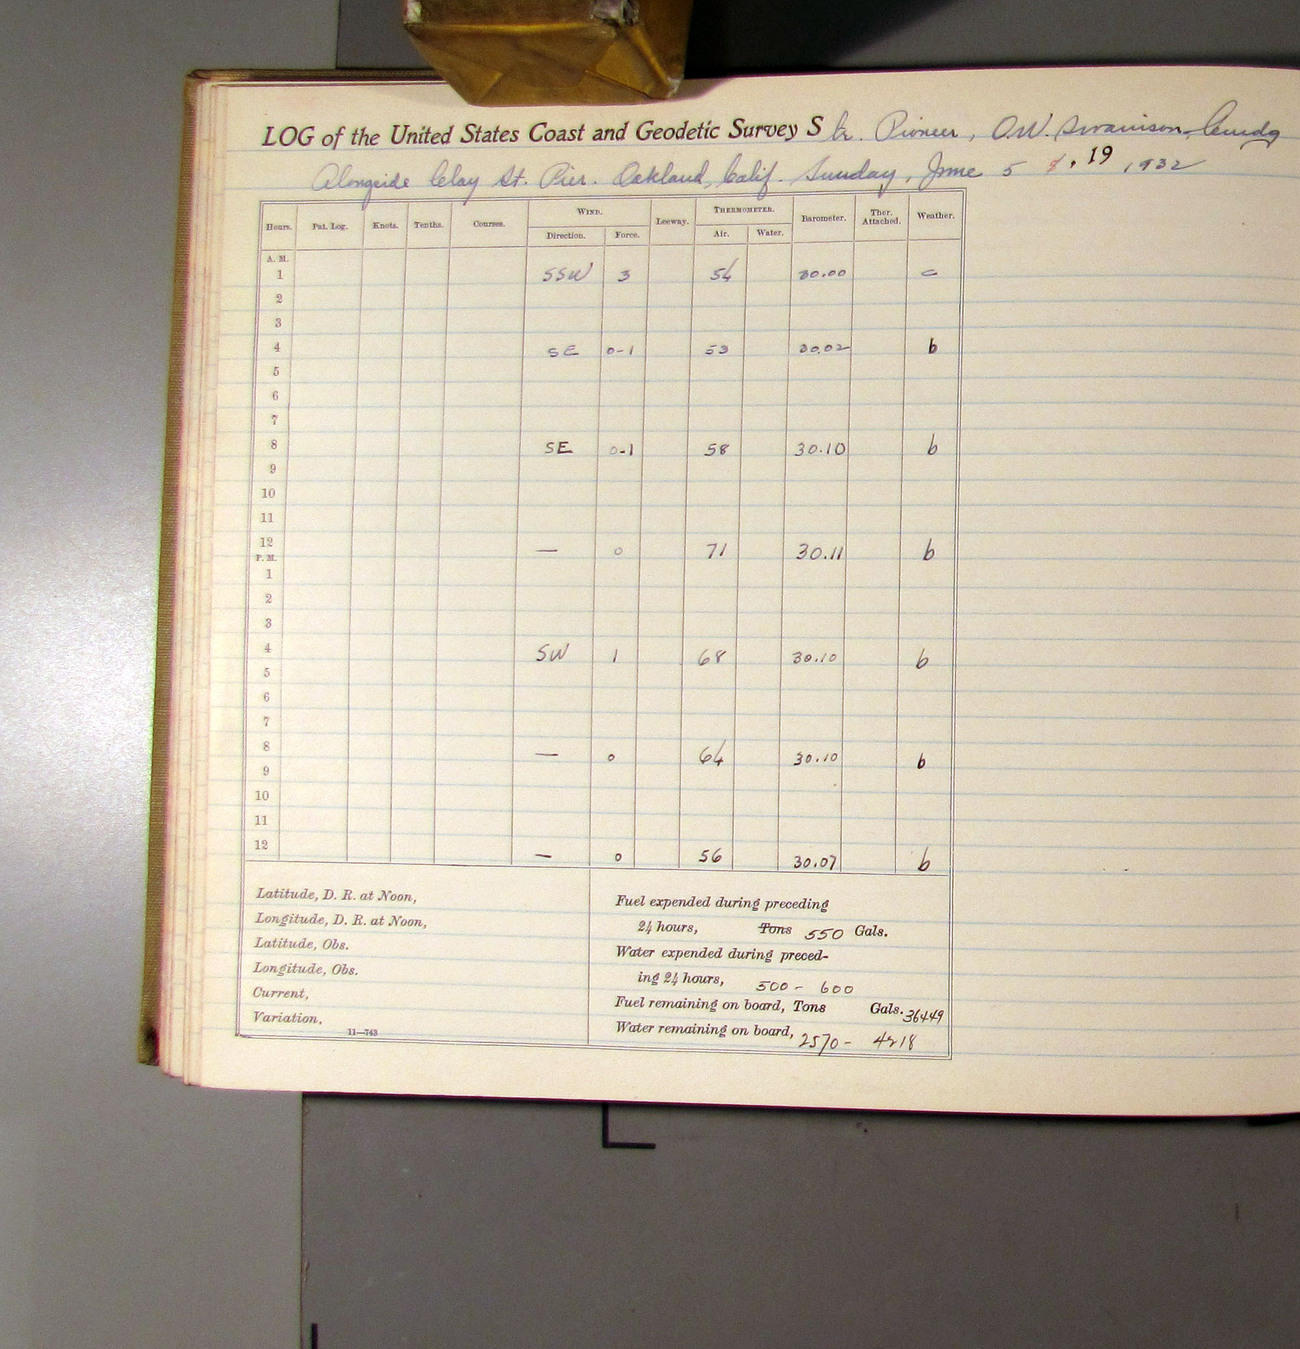 LOG of the United States Coast and Geodetic Survey Str. Pioneer, O.W. Swainson, Comdg
Alongside Clay St. Pier. Oakland, Calif. Sunday, June 5, 19, 1932
Hours. Pat. Log. Knots. Tenths. Courses. WIND. Leeway. THERMOMETER. Barometer. Ther. Attached. Weather.
Direction. Force. Air. Water.
A. M.
1 SSW 3 54 30.00 c
2
3
4 SE 0-1 53 30.02 b
5
6
7
8 SE 0-1 58 30.10 b
9
10
11
12 — 0 71 30.11 b
P. M.
1
2
3
4 SW 1 68 30.10 b
5
6
7
8 — 0 64 30.10 b
9
10
11
12 — 0 56 30.07 b
Latitude, D. R. at Noon,
Longitude, D. R. at Noon,
Latitude, Obs.
Longitude, Obs.
Current,
Variation,
11—743
Fuel expended during preceding
24 hours, Tons 550 Gals.
Water expended during preced-
ing 24 hours, 500 - 600
Fuel remaining on board, Tons Gals. 36449
Water remaining on board, 2570 - 4218